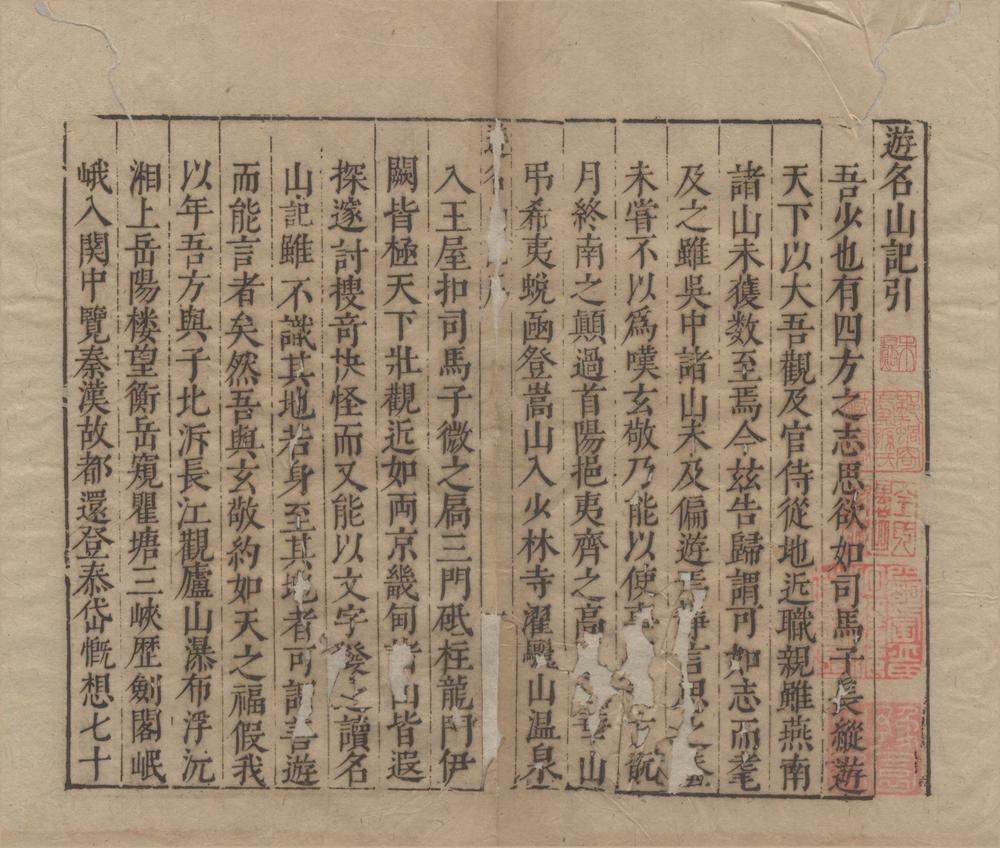 遊名山記引
吾少也有四方之志思欲如司馬子長縱遊
天下以大吾觀及官侍從地近職親雖燕南
諸山未獲数至焉今兹告歸謂可如志而耄
及之雖吳中諸山未及偏遊
未嘗不以爲嘆玄敬乃能以使
月終南之顛過首陽挹夷齊之高山
弔希夷蛻函登嵩山入少林寺濯驪山温泉
入王屋扣司馬子微之扃三門砥柱龍門伊
闕皆極天下壯觀近如両京畿甸皆山皆遐
探邃討搜竒抉怪而又能以文字發之讀名
山記雖不識其地若身至其地者可謂善遊
而能言者矣然吾與玄敬約如天之福假我
以年吾方與子北泝長江觀廬山瀑布浮沅
湘上岳陽楼望衡岳窺瞿塘三峽歴劍閣岷
峨入関中覽秦漢故都還登泰岱慨想七十